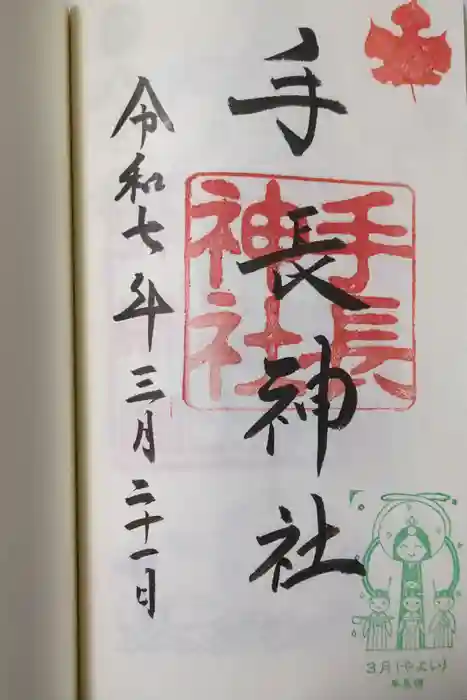 手長神社
手長
神社
令和七年三月二十一日
3月(やよい)